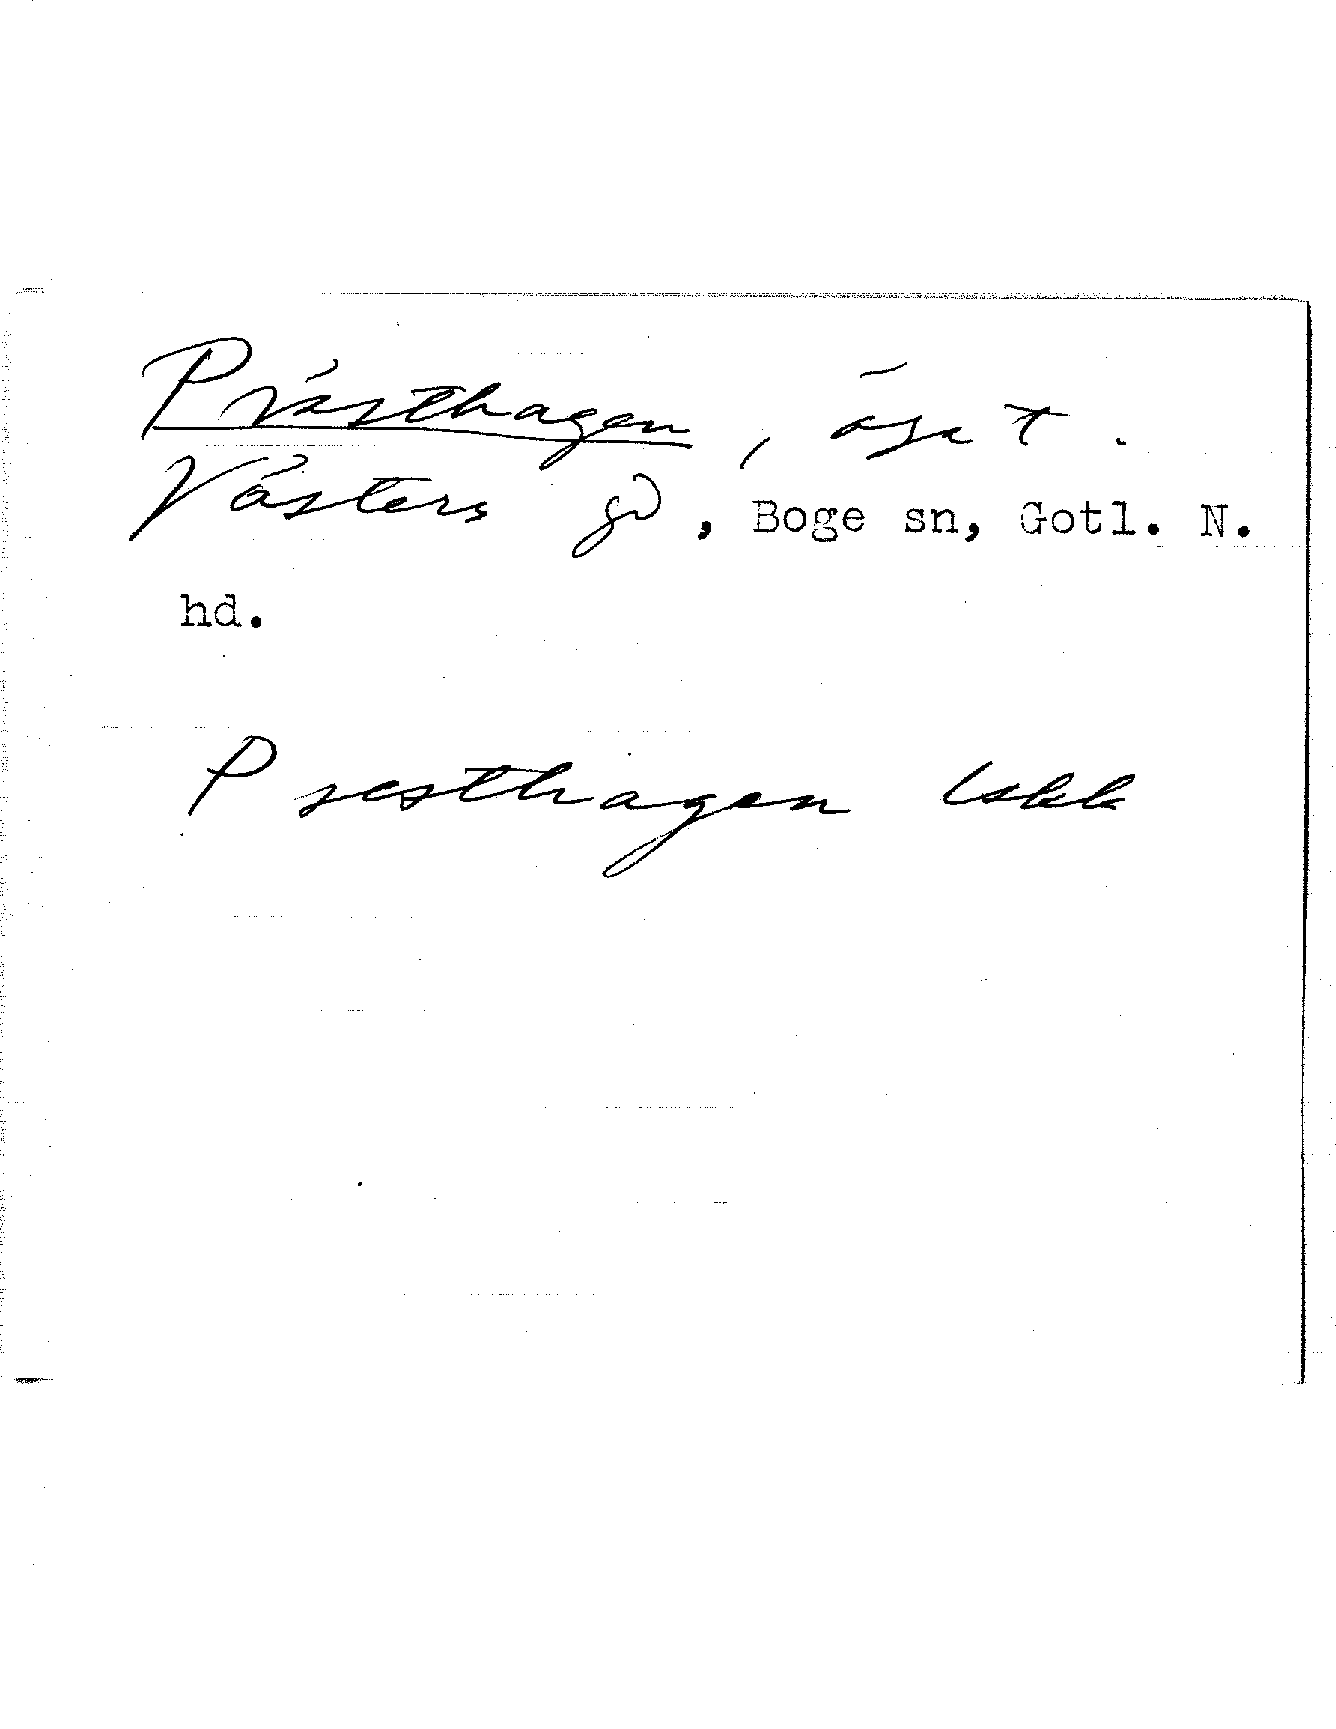 Prästhagen, äga †.
Västers gd, Boge sn, Gotl. N.
hd.
Presthagen Lskk